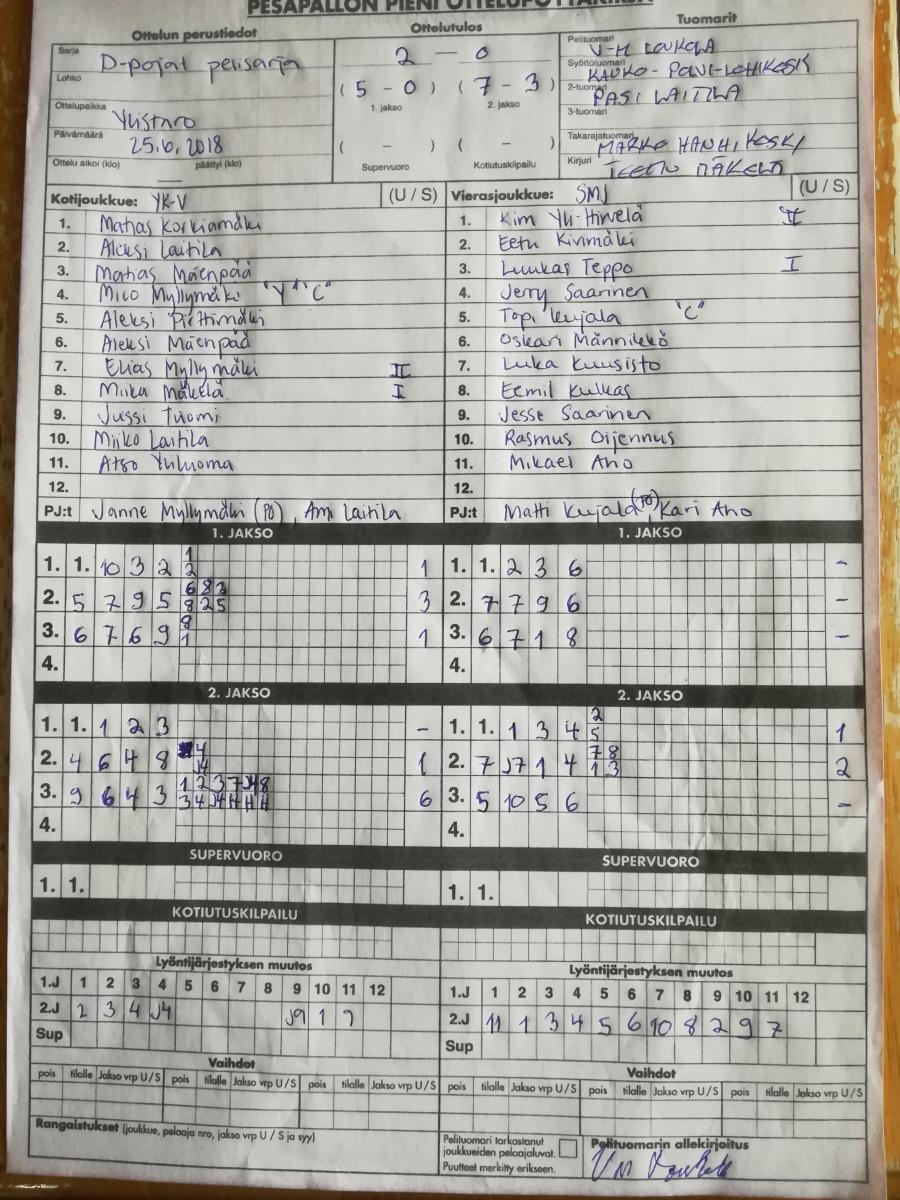 PESÄPALLON PIENI OTTELUPÖYTÄKIRJA
Ottelun perustiedot
Sarja D-pojat pelisarja
Lohko
Ottelupaikka Ylistaro
Päivämäärä 25.6.2018
Ottelu alkoi (klo) päättyi (klo)
Ottelutulos
2 — 0
( 5 - 0 ) ( 7 - 3 )
1. jakso 2. jakso
( - ) ( - )
Supervuoro Kotiutuskilpailu
Tuomarit
Pelituomari V-M LOUKOLA
Syöttötuomari
2-tuomari PASI LAITILA
3-tuomari
Takarajatuomari MARKO HANHIKOSKI
Kirjuri TEEMU MÄKELÄ
Kotijoukkue: YK-V (U / S)
1. Matias Korkiamäki
2. Aleksi Laitila
3. Matias Mäenpää
4. Mico Myllymäki "Y" "C"
5. Aleksi Piettimäki
6. Aleksi Mäenpää
7. Elias Myllymäki II
8. Miika Mäkelä I
9. Jussi Tuomi
10. Miiko Laitila
11. Atso Yliluoma
12.
PJ:t Janne Myllymäki (PO), Ami Laitila
Vierasjoukkue: SMJ (U / S)
1. Kim Yli-Hirvelä II
2. Eetu Kivimäki
3. Luukas Teppo I
4. Jerry Saarinen
5. Topi Kujala "C"
6. Oskari Männikkö
7. Luka Kuusisto
8. Eemil Kulkas
9. Jesse Saarinen
10. Rasmus Oijennus
11. Mikael Aho
12.
PJ:t Matti Kujala (PO), Kari Aho
1. JAKSO
1. 1. 10 3 2 1 2 1
2. 5 7 9 5 6 8 3 8 2 5 3
3. 6 7 6 9 8 1 1
4.
1. JAKSO
1. 1. 2 3 6 -
2. 7 7 9 6 -
3. 6 7 1 8 -
4.
2. JAKSO
1. 1. 1 2 3 -
2. 4 6 4 8 4 J4 1
3. 9 6 4 3 1 2 3 7 J4 8 3 4 J4 6
4.
2. JAKSO
1. 1. 1 3 4 2 5 1
2. 7 J7 1 4 7 8 1 3 2
3. 5 10 5 6 -
4.
SUPERVUORO
1. 1.
SUPERVUORO
1. 1.
KOTIUTUSKILPAILU
KOTIUTUSKILPAILU
Lyöntijärjestyksen muutos
1.J 1 2 3 4 5 6 7 8 9 10 11 12
2.J 2 3 4 J4 J9 1 9
Sup
Lyöntijärjestyksen muutos
1.J 1 2 3 4 5 6 7 8 9 10 11 12
2.J 11 1 3 4 5 6 10 8 2 9 7
Sup
Vaihdot
pois tilalle Jakso vrp U / S pois tilalle Jakso vrp U / S pois tilalle Jakso vrp U / S
Vaihdot
pois tilalle Jakso vrp U / S pois tilalle Jakso vrp U / S pois tilalle Jakso vrp U / S
Rangaistukset (joukkue, pelaaja nro, jakso vrp U / S ja syy)
Pelituomari tarkastanut
joukkueiden pelaajaluvat.
Puutteet merkitty erikseen.
Pelituomarin allekirjoitus